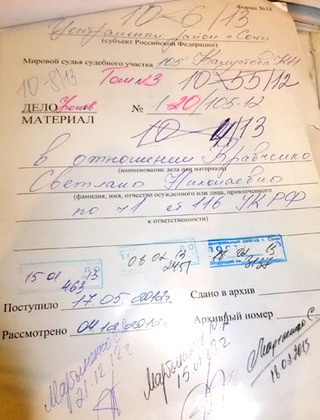 10-6/13
Форма №18
Центральный район г. Сочи
(субъект Российской Федерации)
Мировой судья судебного участка 105
10-8/13 Том 13 10-55/12
ДЕЛО № 1-20/105-12
МАТЕРИАЛ
10-4/13
в отношении Кравченко
(наименование дела или материала)
Светлана Николаевна
(фамилия, имя, отчество осужденного или лица, привлеченного
по ч1 ст 116 УК РФ
к ответственности)
15 01 13
463
08 02 13
2451
Поступило 17.05.2012г. Сдано в архив
Рассмотрено 04.12.2012г. Архивный номер
21.12.12
15.01
18.03.2013